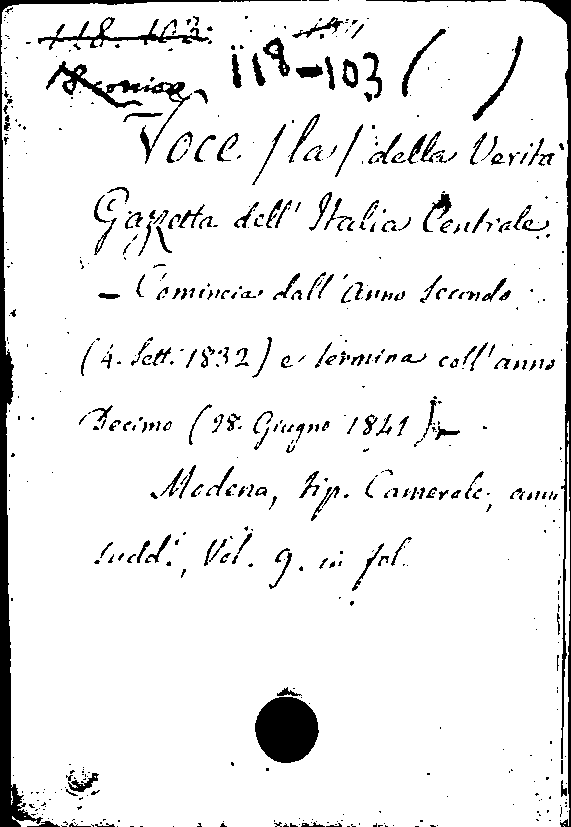 118. 103.
118-103 ( )
Voce /la/ della Verità
Gazzetta dell' Italia Centrale.
- Comincia dall' Anno Secondo
(4. Sett. 1832) e termina coll' anno
Decimo (28. Giugno 1841) -
Modena, tip. Camerale, anni
sudd.i, Vol. 9. in fol.